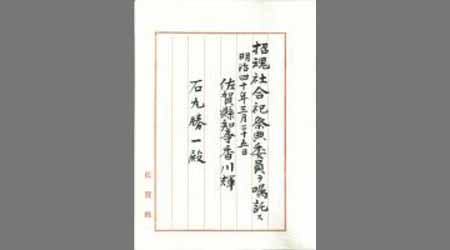 招魂社合祀祭典委員ヲ嘱託ス
明治四十年三月二十五日
佐賀縣知事香川輝
石丸勝一殿
佐賀縣